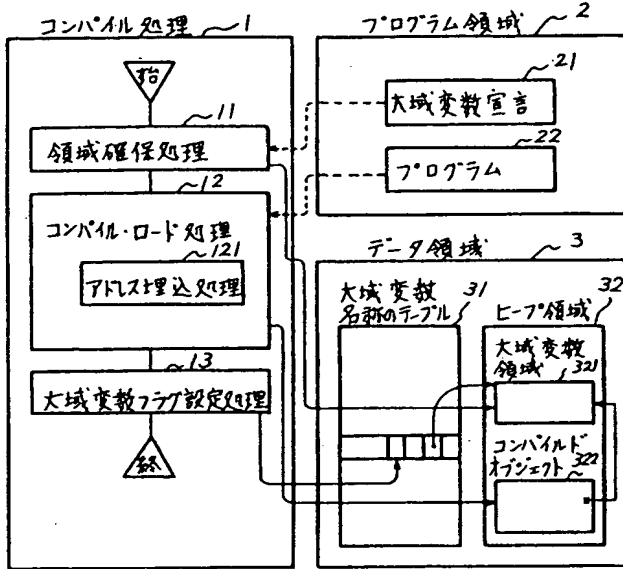 コンパイル処理
1
始
11
領域確保処理
12
コンパイル・ロード処理
121
アドレス埋込処理
13
大域変数フラグ設定処理
終
プログラム領域
2
21
大域変数宣言
22
プログラム
データ領域
3
大域変数
名称のテーブル
31
ヒープ領域
32
大域変数
領域
321
コンパイルド
オブジェクト
322